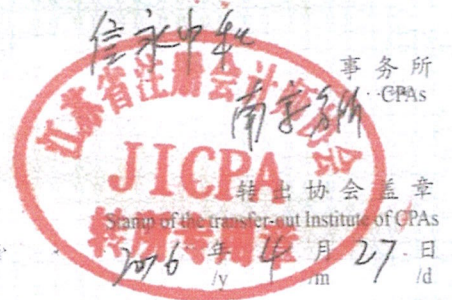 信永中和
事务所
CPAs
南京分所
江苏省注册会计师协会
JICPA
转所专用章
转出协会盖章
Stamp of the transfer-out Institute of CPAs
2016年4月27日
/y /m /d